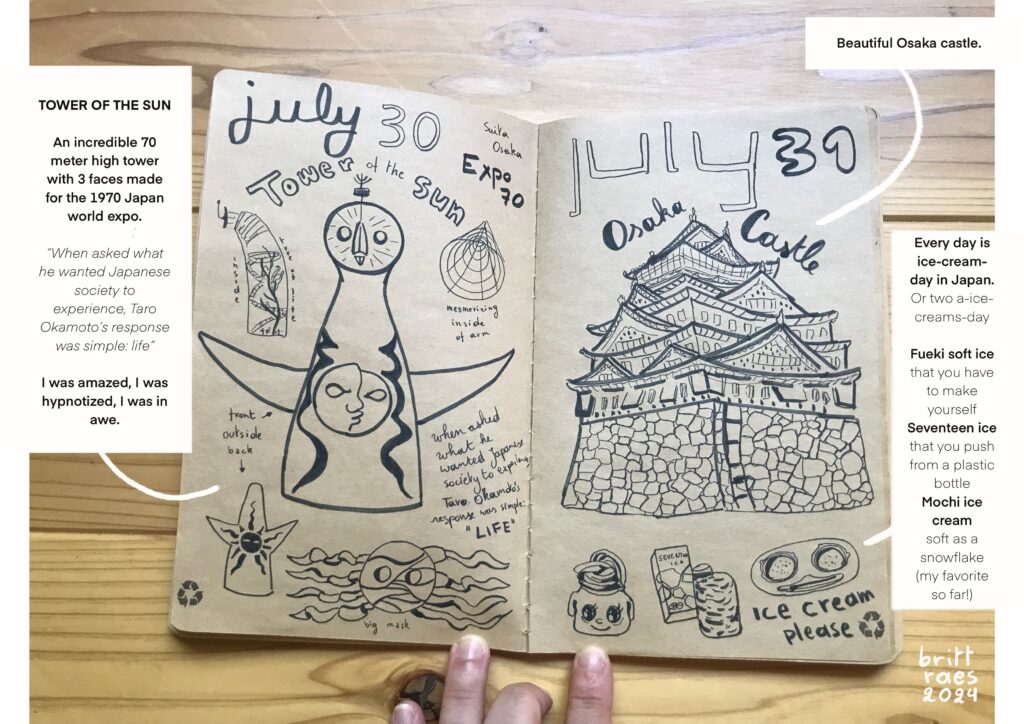 TOWER OF THE SUN
An incredible 70
meter high tower
with 3 faces made
for the 1970 Japan
world expo.
“When asked what
he wanted Japanese
society to
experience, Taro
Okamoto’s response
was simple: life”
I was amazed, I was
hypnotized, I was in
awe.
july 30
Suita
Osaka
Expo
70
Tower of the Sun
inside
tree of life
mesmerizing
inside
of arm
front
outside
back
when asked
what he
wanted japanese
society to experience
Taro Okamoto's
response was simple:
"LIFE"
big mask
july 30
Osaka Castle
SEVENTEEN
ice
ice cream
please
Beautiful Osaka castle.
Every day is
ice-cream-
day in Japan.
Or two a-ice-
creams-day
Fueki soft ice
that you have
to make
yourself
Seventeen ice
that you push
from a plastic
bottle
Mochi ice
cream
soft as a
snowflake
(my favorite
so far!)
britt
raes
2024